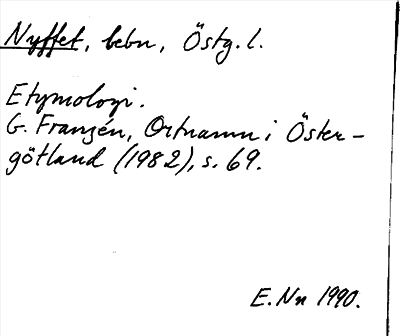 Nyffet, bebn, Östg. l.
Etymologi.
G. Franzén, Ortnamn i Öster-
götland (1982), s. 69.
E. Nn 1990.